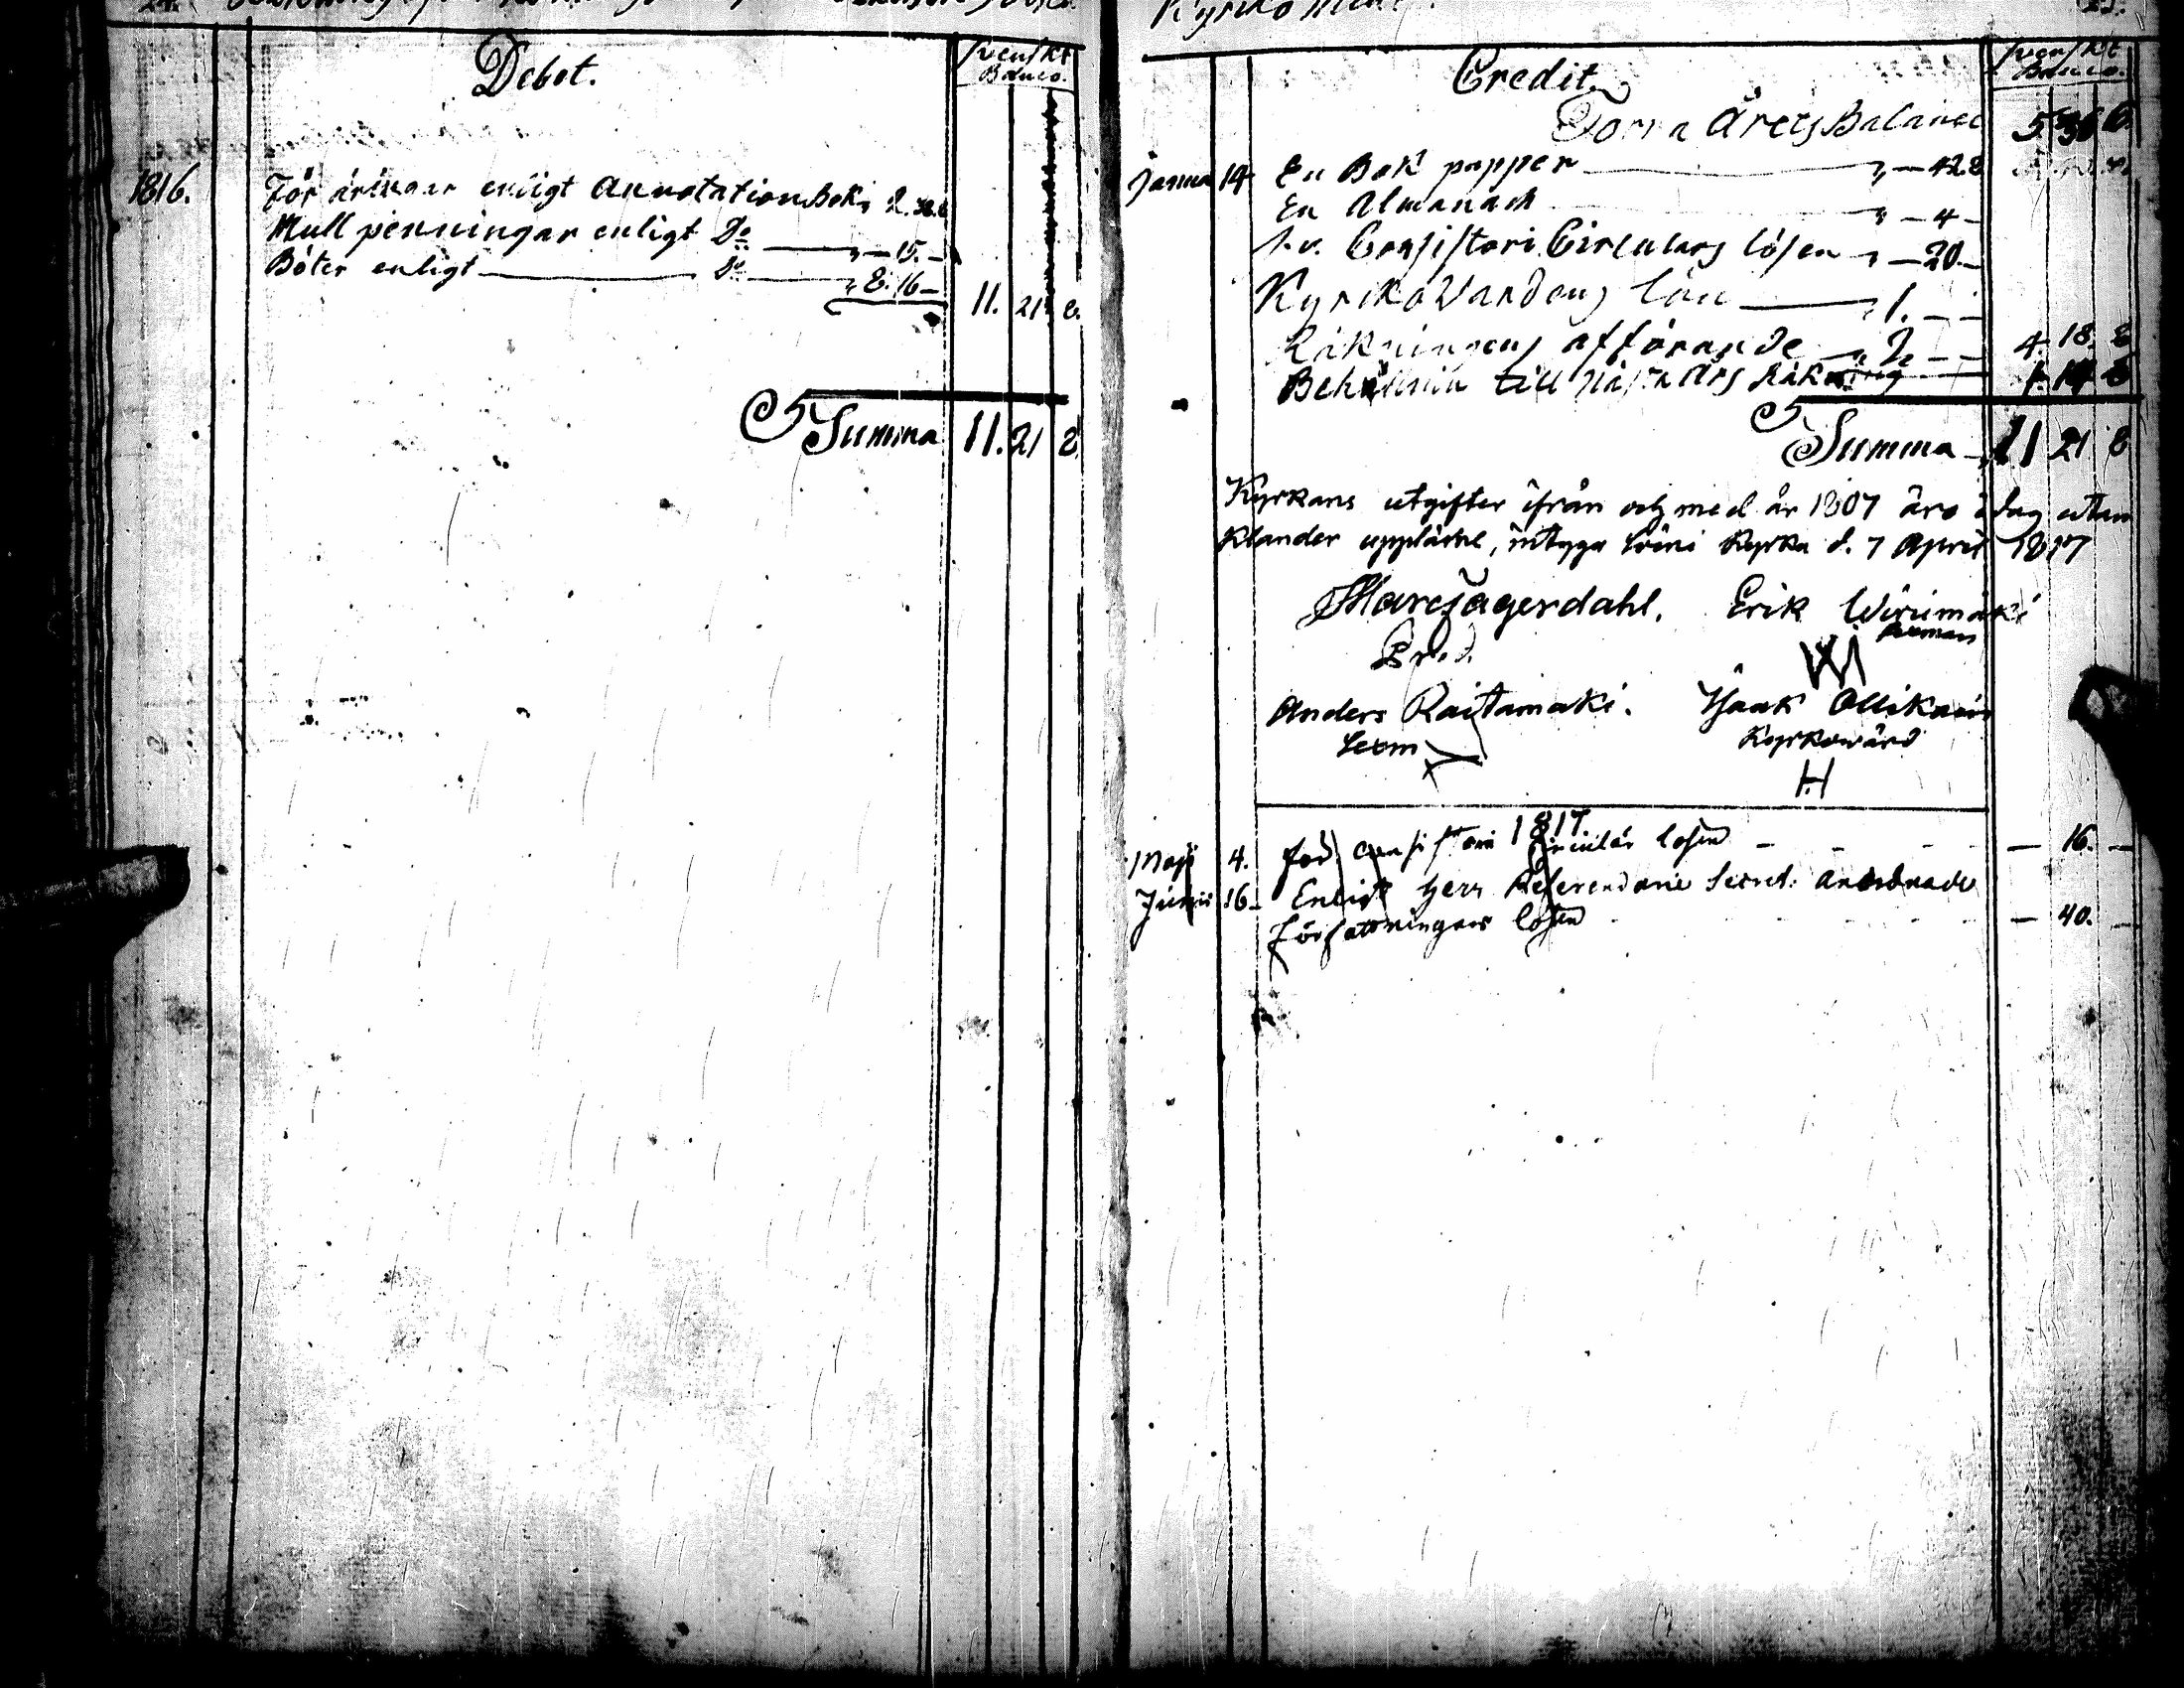 24.
Debet.
Svenskt
Banco.
1816.
För enligt Annotation Bok, 2.
Mull penningar enligt Do — " — 15. —
Böter enligt — Do — " 8. 16 —
11. 21 8.
Summa 11. 21 8.
Kyrko
Credit.
Svenskt
Banco.
Förra Årets Balance 5 36 6.
Janua 14 En Bok papper — " — 42. 8
En Almanach — " — 4 —
Consistori Circulars lösen — " — 20. —
Kyrko Wardens lön — " 1. — —
Räkningens afförande — " 2 — — 4. 18. 8
till nästa Års Räkning 1. 14 6
Summa — 11 21 8
Kyrkans utgifter ifrån och med år 1807 äro i dag utan
klander uppläste, intyga Kyrka d. 7 April 1817
Marc Jagerdahl. Erik Wirimäki
Anders Raitamaki. Isaak Ollikain
Sexm Kyrkowärd
H
1817
Maji 4. för Consistorii Circulär losen — — 16. —
Junii 16 Enligt herr Referendarie Secret.
författningars lösen — 40. —